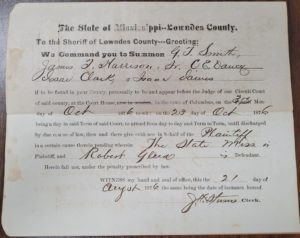 The State of Mississippi--Lowndes County.
To the Sheriff of Lowndes County---Greeting:
We Command you to Summon G. T. Smith,
James T. Harrison, Sr. C. E.
Isaac Clark, & Isaac
if to be found in your County, personally to be and appear before the Judge of our Circuit Court
of said county, at the Court House, in the town of Columbus, on the Mon
day of Oct 1876 23 of Oct 1876
being a day in said Term of said Court, to attend from day to day and Term to Term, until discharged
by due course of law, then and there give evidence in behalf of the Plaintiff
in a certain cause therein pending wherein The State of Miss is
Plaintiff, and Robert Gleed is Defendant.
Herein fail not, under the penalty prescribed by law.
WITNESS my hand and seal of office, this the 21 day
of 1876 the same being the date of issuance hereof.
Clerk.